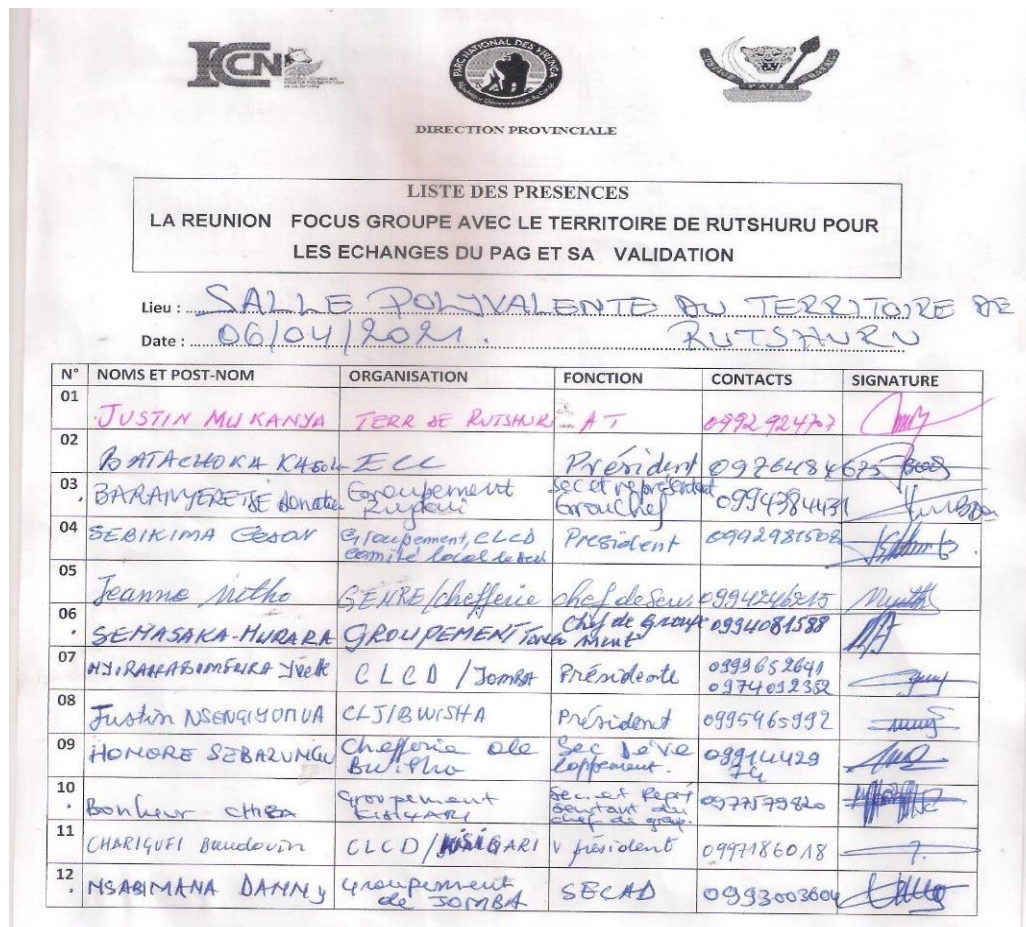 ICCN
PARC NATIONAL DES VIRUNGA
République Démocratique du Congo
DIRECTION PROVINCIALE
LISTE DES PRESENCES
LA REUNION FOCUS GROUPE AVEC LE TERRITOIRE DE RUTSHURU POUR
LES ECHANGES DU PAG ET SA VALIDATION
Lieu : SALLE POLYVALENTE DU TERRITOIRE DE
RUTSHURU
Date : 06/04/2021.
N° NOMS ET POST-NOM ORGANISATION FONCTION CONTACTS SIGNATURE
01 JUSTIN MUKANYA TERR DE RUTSHUR AT 0992924707
02 ECC Président 0976484675
03 BARANYERETSE Groupement Sec et représentant Grouchef 0994384431
04 SEBIKIMA GESON Groupement, CLCD comité local de Président 0992981508
05 Jeanne SENRE/chefferie chef de Serv. 0994246215
06 SEMASAKA-MURARA GROUPEMENT chef de Groupe ment 0994081588
07 CLCD/JOMBA Présidente 0999652641
0974012352
08 Justin NSENGIYOMVA CLJ/BWISHA Président 0995965992
09 HONORE SEBAZUNGU Chefferie de Bwisha Sec Déve loppement. 09914429 74
10 Bonheur CHIBA Groupement KISIGARI Sec. et Repré sentant du chef de group. 0977579820
11 CHARIGUFI Baudouin CLCD/KISIGARI V président 0997186018
12 NSABIMANA DANNY Groupement de JOMBA SECAD 0993003604